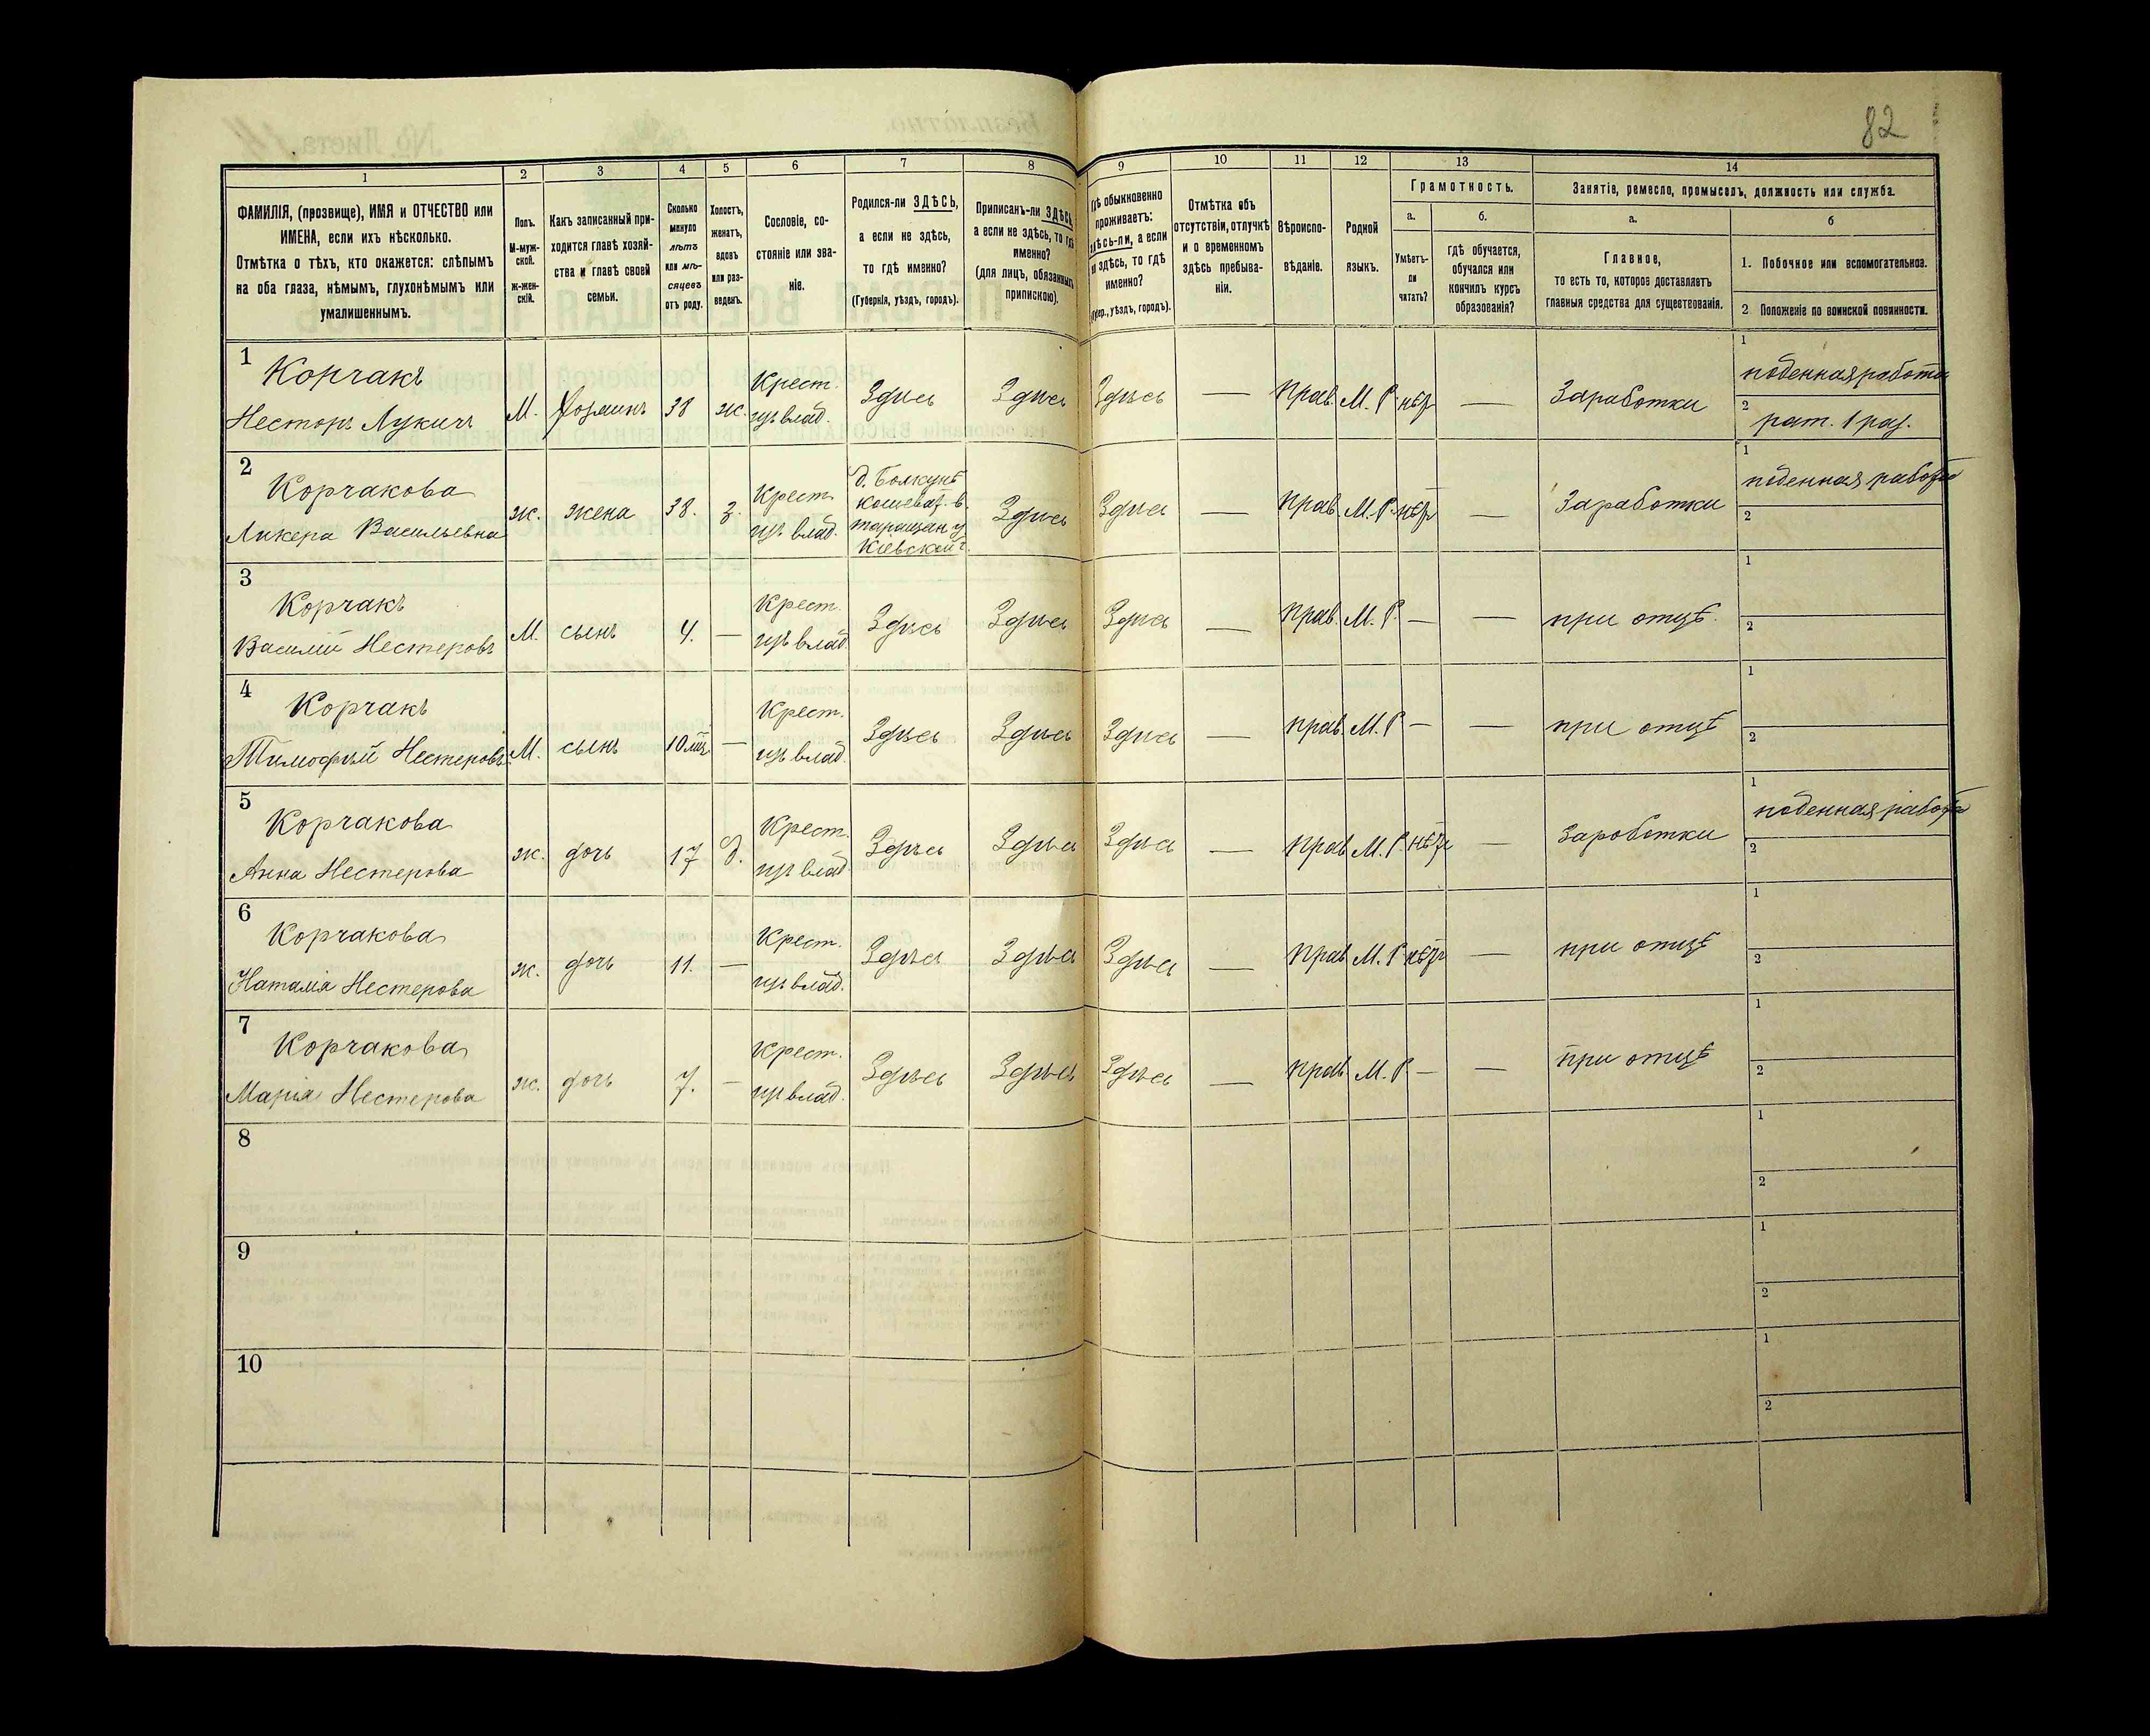 82
1 2 3 4 5 6 7 8 9 10 11 12 13 14
ФАМИЛІЯ, (прозвище), ИМЯ и ОТЧЕСТВО или
ИМЕНА, если ихъ нѣсколько.
Отмѣтка о тѣхъ, кто окажется: слѣпымъ
на оба глаза, нѣмымъ, глухонѣмымъ или
умалишеннымъ.
Полъ.
М-муж-
ской.
ж-жен-
скій.
Какъ записанный при-
ходится главѣ хозяй-
ства и главѣ своей
семьи.
Сколько
минуло
лѣтъ
или мѣ-
сяцевъ
отъ роду.
Холостъ,
женатъ,
вдовъ
или раз-
веденъ.
Сословіе, со-
стояніе или зва-
ніе.
Родился-ли ЗДѢСЬ,
а если не здѣсь,
то гдѣ именно?
(Губернія, уѣздъ, городъ).
Приписанъ-ли ЗДѢСЬ,
а если не здѣсь, то гдѣ
именно?
(для лицъ, обязанныхъ
припискою).
Гдѣ обыкновенно
проживаетъ:
здѣсь-ли, а если
не здѣсь, то гдѣ
именно?
(Губер., уѣздъ, городъ).
Отмѣтка объ
отсутствіи, отлучкѣ
и о временномъ
здѣсь пребыва-
ніи.
Вѣроиспо-
вѣданіе.
Родной
языкъ.
Грамотность.
а.
Умѣетъ-
ли
читать?
б.
гдѣ обучается,
обучался или
кончилъ курсъ
образованія?
Занятіе, ремесло, промыселъ, должность или служба.
а.
Главное,
то есть то, которое доставляетъ
главныя средства для существованія.
б
1. Побочное или вспомогательное.
2 Положеніе по воинской повинности.
1
Корчакъ
Несторъ Лукичъ
М. хозяинъ 38 ж. Крест.
изъ влад.
Здѣсь Здѣсь Здѣсь — Прав. М. Р. нѣтъ — Заработки
1 поденная работа
2 рат. 1 раз.
2
Корчакова
Ликера Васильевна
ж. жена 38. з. Крест.
изъ влад.
д. Болкунъ
кошеват. в.
таращан. у
Кіевской г.
Здѣсь Здѣсь — Прав. М. Р. нѣтъ — Заработки
1 поденная работа
2
3
Корчакъ
Василій Нестеровъ
М. сынъ 4. — Крест.
изъ влад.
Здѣсь Здѣсь Здѣсь — Прав. М. Р. — — при отцѣ.
1
2
4
Корчакъ
Тимофѣй Нестеровъ
М. сынъ 10 мѣс. — Крест.
изъ влад.
Здѣсь Здѣсь Здѣсь — прав. М. Р — — при отцѣ
1
2
5
Корчакова
Анна Нестерова
ж. дочь 17 д. Крест.
изъ влад
Здѣсь Здѣсь Здѣсь — прав М. Р. нѣтъ — Зароботки
1 поденная работа
2
6
Корчакова
Наталія Нестерова
ж. дочь 11. — Крест.
изъ влад.
Здѣсь Здѣсь Здѣсь — прав М. Р нѣтъ — при отцѣ
1
2
7
Корчакова
Марія Нестерова
ж. дочь 7. — Крест.
изъ влад.
Здѣсь Здѣсь Здѣсь — прав. М. Р. — — при отцѣ
1
2
8
1
2
9
1
2
10
1
2